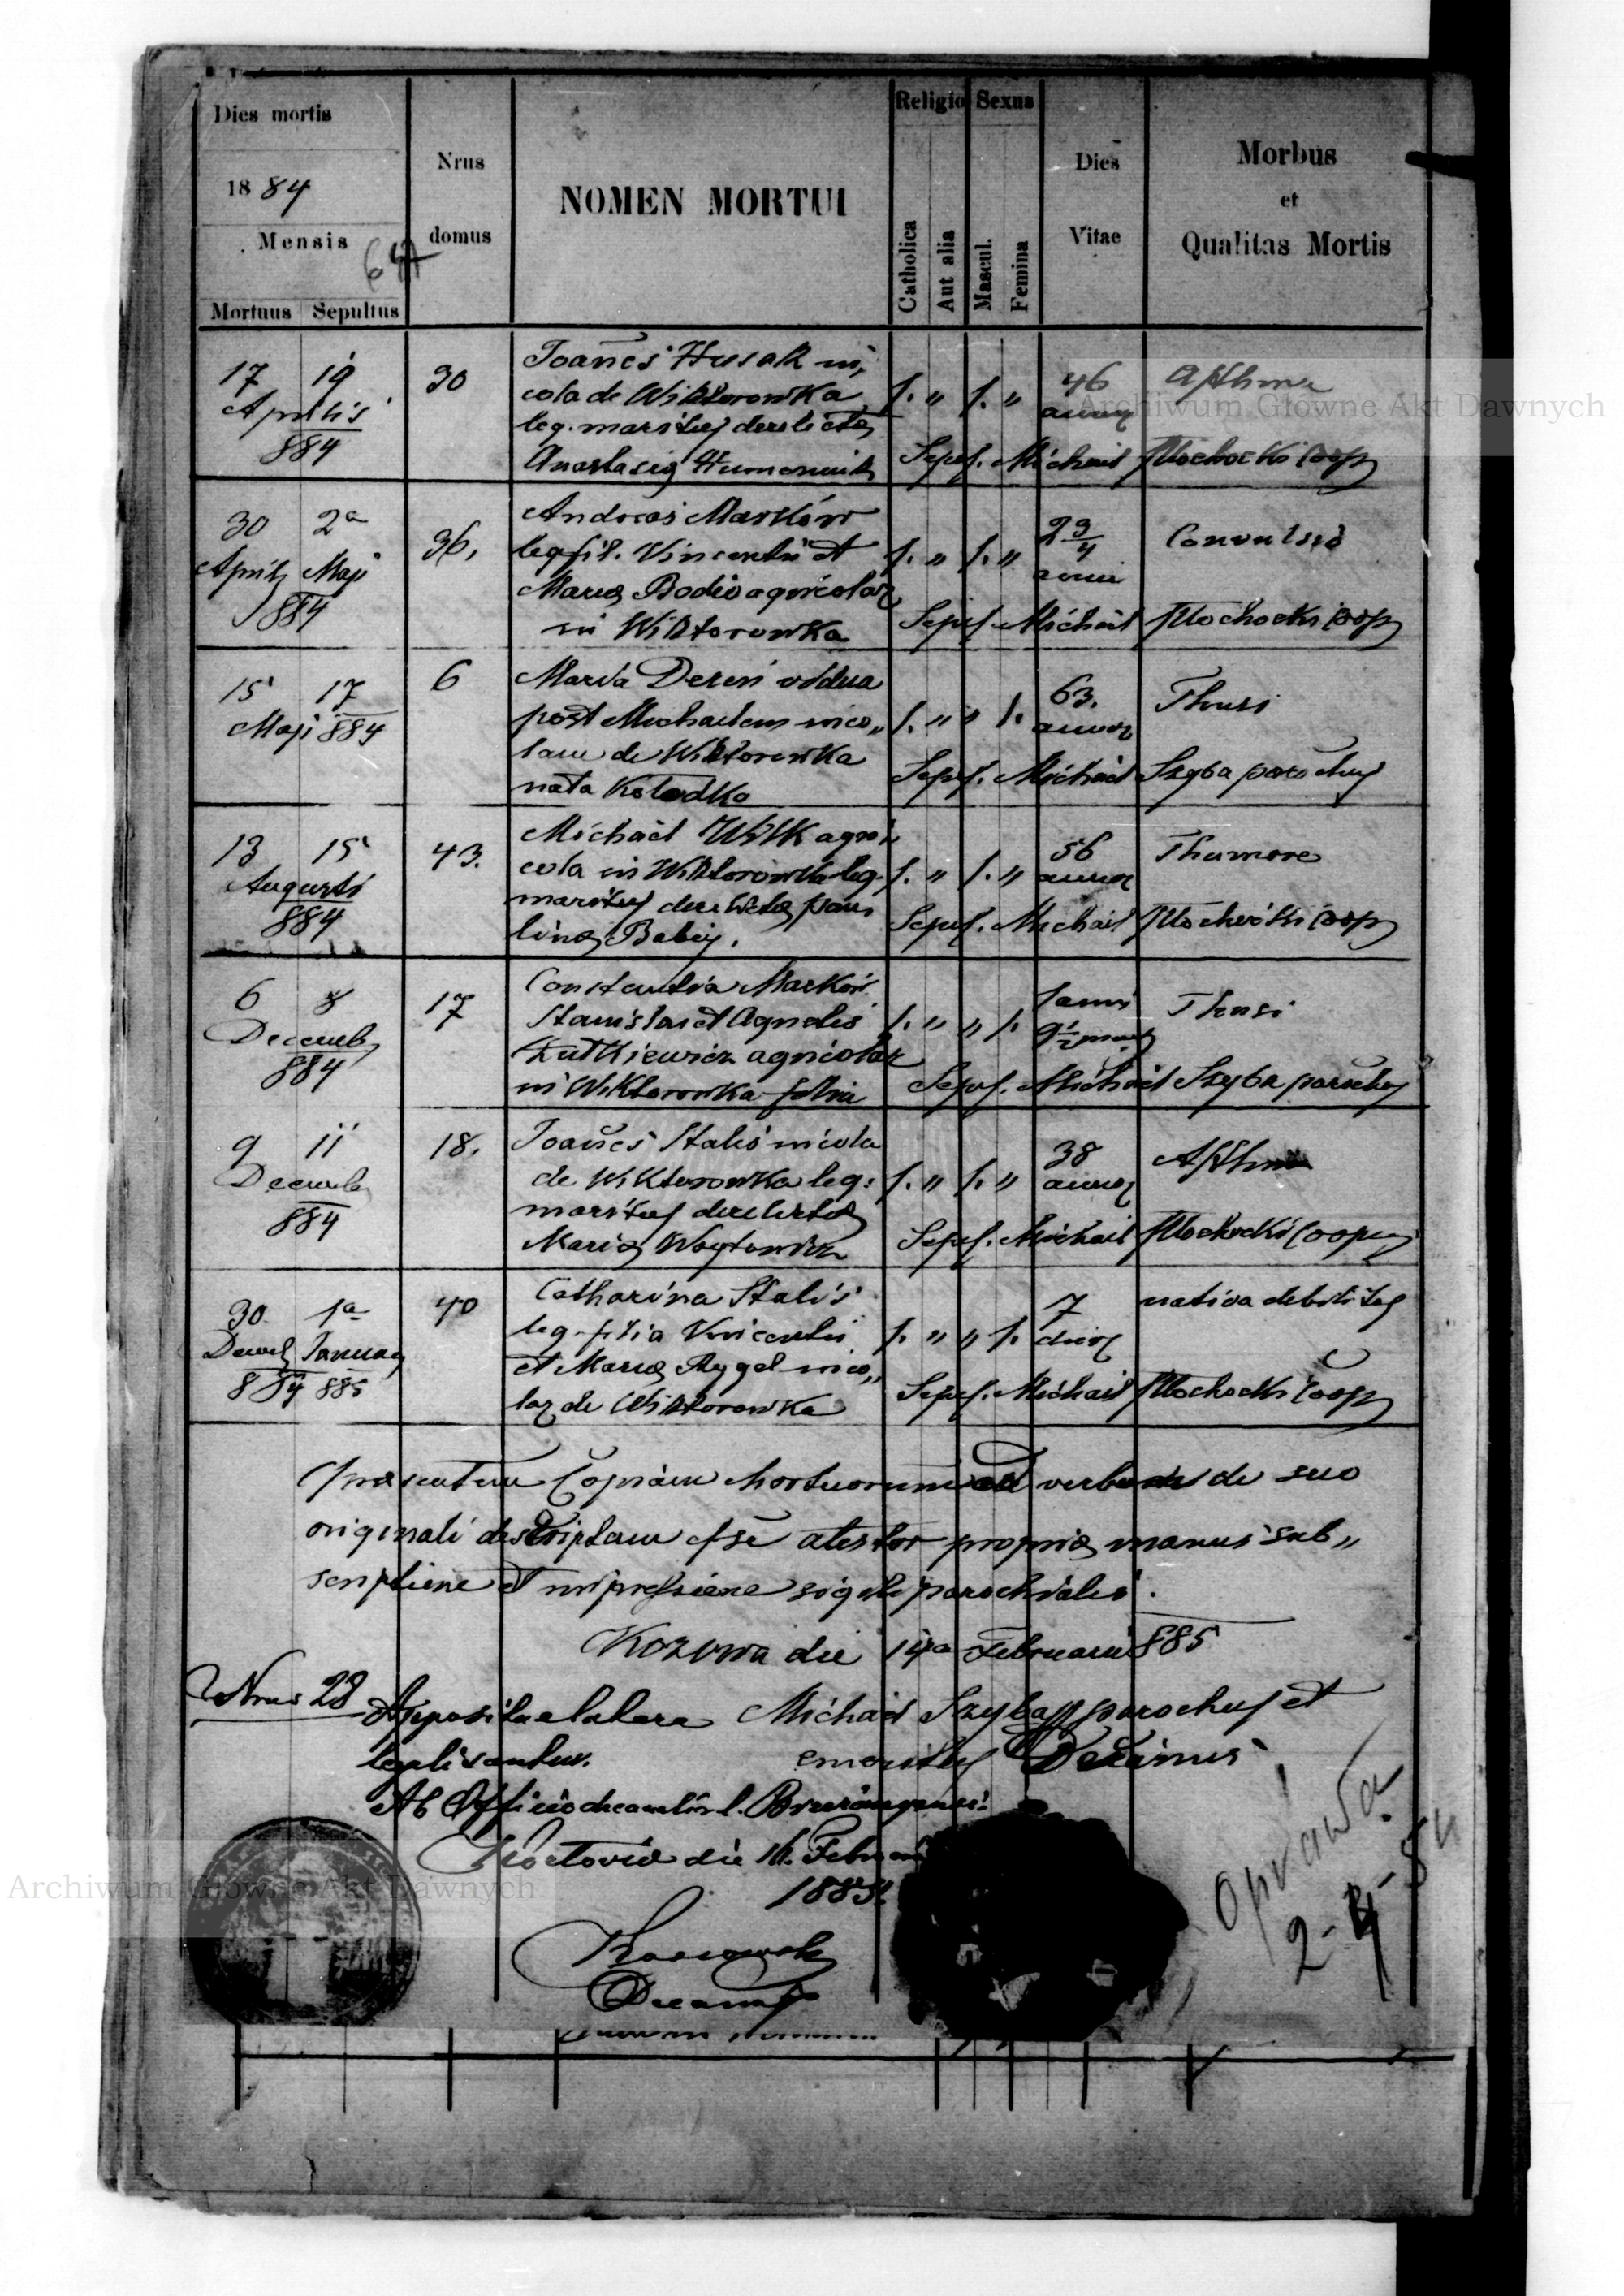 Dies mortis
1884
Mensis
647
Mortuus Sepultus
Nrus
domus
NOMEN MORTUI
Religio
Catholica
Aut alia
Sexus
Mascul.
Femina
Dies
Vitae
Morbus
et
Qualitas Mortis
17 19
Aprilis
884
30
Joañes Husak in,
cola de Wiktorowka
leg. maritus derelictæ
Anastasiæ Humeniuk
1. " 1. "
46
annor
Asthma
Sepel. Michael Płochocki Coop
30 2a
Aprilis Maji
884
36.
Andreas Marków
leg fil. Vincentii et
Mariæ Bodio agricolar
in Wiktorowka
1. " 1. "
2 3/4
anni
Convulsio
Sepel. Michael Płochocki Coop
15 17
Maji 884
6
Maria Dereń vidua
post Michaelem inco„
lam de Wiktorowka
nata Kołodko
1. " " 1.
63.
annor
Thusi
Sepel. Michael Szyba parochus
13 15
Augusti
884
43.
Michael Wilk agri„
cola in Wiktorowka leg.
maritus derelictæ Pau
linæ Babij.
1. " 1. "
56
annor
Thumore
Sepel. Michael Płochocki Coop
6 8
Decemb
884
17
Constantia Marków
Stanislai et Agnetis
Lutkiewicz agricolar
in Wiktorowka filia
1. " " 1.
1 anni
9 1/2 mens
Thusi
Sepel. Michael Szyba parochus
9 11
Decemb
884
18.
Joañes Staliś incola
de Wiktorowka leg:
maritus derelictæ
Mariæ Woytowicz
1. " 1. "
38
annor
Asthma
Sepel. Michael Płochocki Cooper
30. 1a
Decemb Januar
884 885
40
Catharina Staliś
leg. filia Vincentii
et Mariæ Rygel inco„
lar de Wiktorowka
1. " " 1.
7
dier
nativa debilitas
Sepel. Michael Płochocki Coop
Præsentem Copiam Mortuorum ad verbum de suo
originali descriptam esse atestor propriæ manus sub„
scriptione et impressione sigili parochialis.
Kozowa die 14a Februarii 885
Nrus 28
Michael Szyba parochus et
emeritus Decanus
Apposita e latere
legalisantur.
Ab Officio decanali r. l. Brzeżanensi
die 16. Februarii
1885.
Decanus
oprawa
2-4-54
Archiwum Główne Akt Dawnych
Archiwum Główne Akt Dawnych